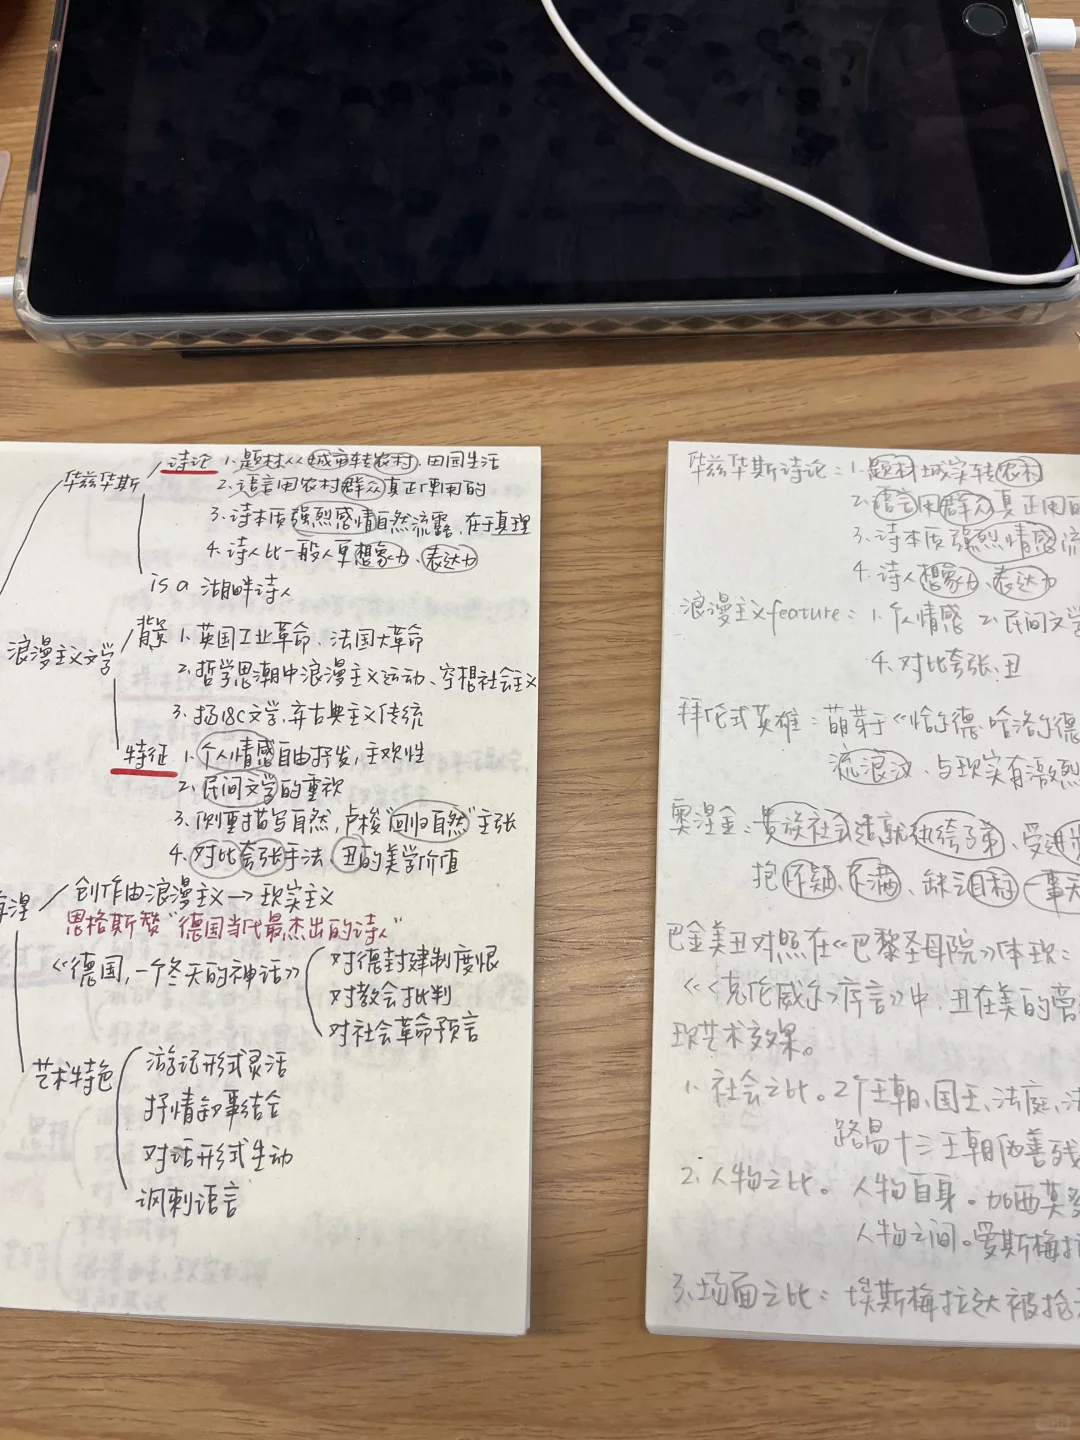 华兹华斯
诗论 1.题材从城市转农村,田园生活
2.语言用农村群众真正使用的
3.诗本质强烈感情自然流露,在于真理
4.诗人比一般人更想象力、表达力
is a 湖畔诗人
浪漫主义文学
背景 1.英国工业革命、法国大革命
2.哲学思潮中浪漫主义运动、空想社会主义
3.扬18C文学,弃古典主义传统
特征 1.个人情感自由抒发,主观性
2.民间文学的重视
3.侧重描写自然,卢梭"回归自然"主张
4.对比夸张手法、丑的美学价值
涅 创作由浪漫主义→现实主义
恩格斯赞"德国当代最杰出的诗人"
《德国,一个冬天的神话》
对德封建制度恨
对教会批判
对社会革命预言
艺术特色
游记形式灵活
抒情叙事结合
对话形式生动
讽刺语言
华兹华斯诗论:1.题材城实转农村
2.语言用群众真正用的
3.诗本质强烈情感流
4.诗人想象力、表达力
浪漫主义feature:1.个人情感 2.民间文学
4.对比夸张、丑
拜伦式英雄:萌芽于《恰尔德·哈洛尔德
流浪汉、与现实有激烈
奥涅金:贵族社会造就纨绔子弟、受进
抱怀疑、不满,缺乏目标,一事无
巴金美丑对照在《巴黎圣母院》体现:
《《克伦威尔》序言》中,丑在美的旁
现艺术效果。
1.社会之比。2个王朝、国王、法庭、法
路易十三王朝伪善残
2.人物之比。人物自身。加西莫多
人物之间。爱斯梅拉
3.场面之比:埃斯梅拉达被抢